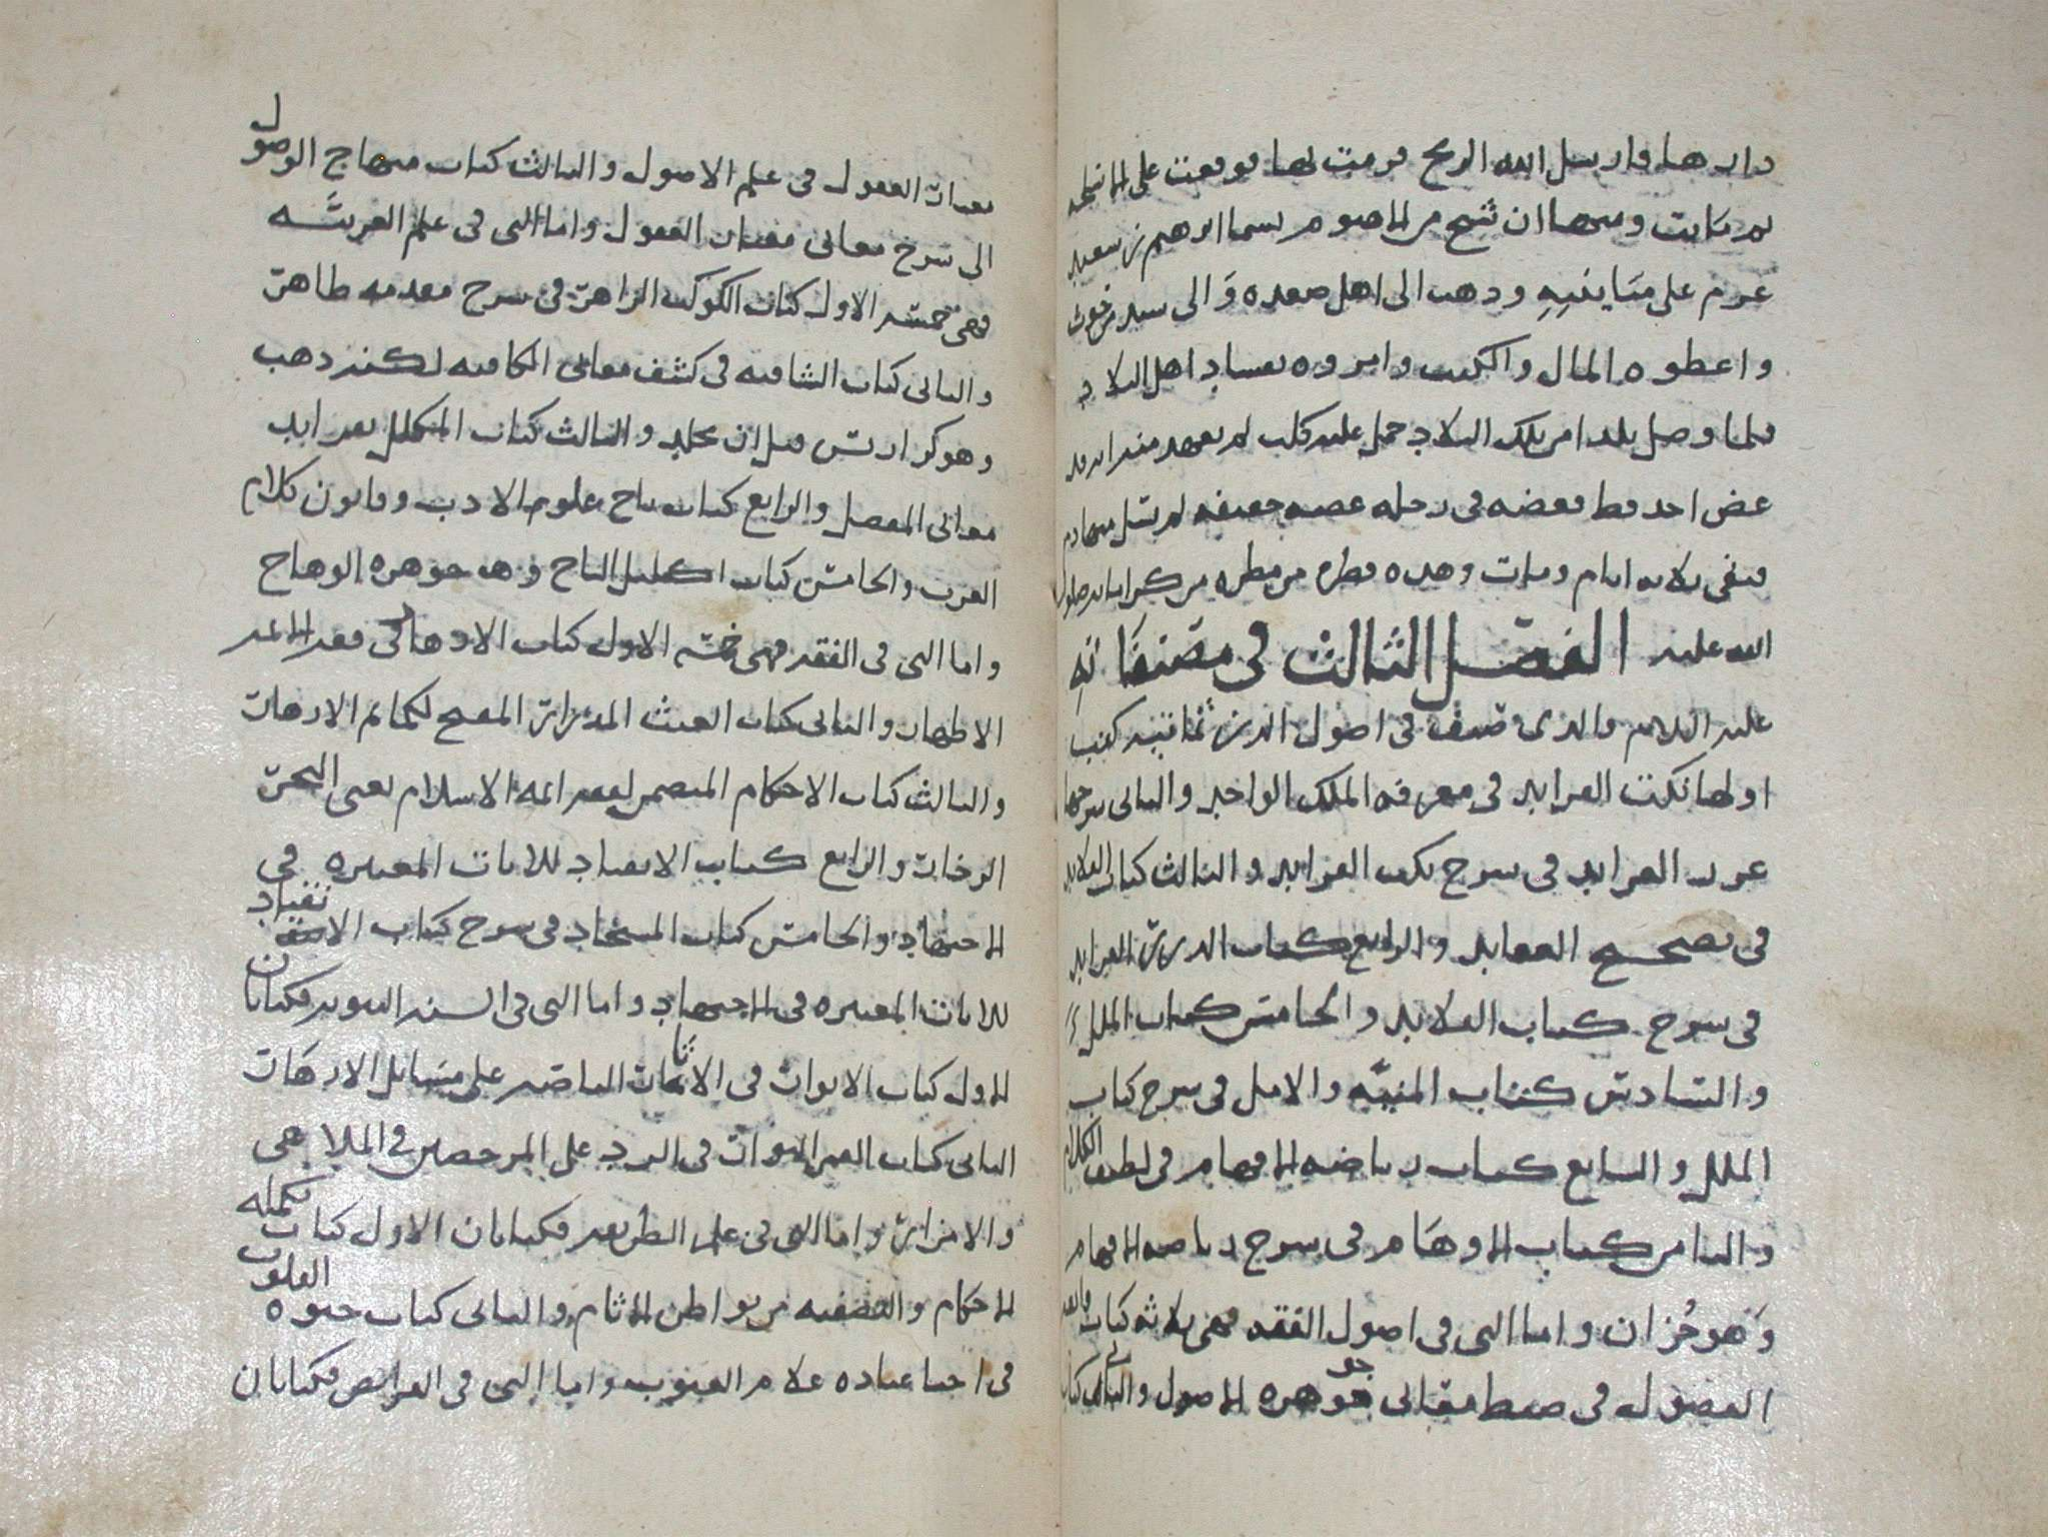 دارها فارسل الله الريح فرمت بها فوقعت على
ثم ماتت ومنها ان شيخ من يسما ابرهيم بن سعيد
عزم على ودهب الى اهل صعده وَالى
واعطوه المال والكتب وامروه بفساد اهل البلاد
فلما وصل بلد من تلك البلاد حمل عليه كلب لم يعهد منه انه قد
عض احد قط فعضه في رجله عضه خفيفه لم يسل منها دم
فبقى ثلاثه ايام ومات وهده قطره من مطره من كراماته صلوات
الله عليه الفصل الثالث في مصنفاته
عليه السلام والذي صنف في اصول الدين ثمانيه كتب
اولها نكت الفرايد في معرفه الملك الواحد والثانى شرحها
غرر الفرايد في شرح نكت الفرايد والثالث كتاب القلايد
في تصحيح العقايد والرابع كتاب الدرر الفرايد
في شرح كتاب القلايد والخامس كتاب الملل
والسادس كتاب المنيه والامل في شرح كتاب
الملل والسابع كتاب رياضه الافهام في لطيف الكلام
والثامن كتاب الاوهام في شرح رياضه الافهام
وَهو جُزان واما التى في اصول الفقه فهى ثلاثه كتاب فايقه
الفصول في ضبط معانى جوهره الاصول والثانى كتاب
معيار العقول في علم الاصول والثالث كتاب منهاج الوصول
الى شرح معانى معيار العقول واما التى في علم العربيه
فهى خمسه الاول كتاب الكوكب الزاهر في شرح مقدمه طاهر
والثانى كتاب الشافيه في كشف معانى الكافيه لكنه دهب
وهو كراريس قبل ان يجلد والثالث كتاب المكلل بفرايد
معانى المفصل والرابع كتاب تاج علوم الادب وقانون كلام
العرب والخامس كتاب اكليل التاج وهـ جوهره الوهاج
واما التى في الفقه فهى خمسه الاول كتاب الازهار في فقه الائمه
الاطهار والثانى كتاب الغيث المدرار المفتح لكمائم الازهار
والثالث كتاب الاحكام المتضمن لفقه ائمه الاسلام يعنى البحر
الزخار والرابع كتاب الانتقاد للايات المعتبره في
الاجتهاد والخامس كتاب المستجاد في شرح كتاب الانتقاد
للايات المعتبره في الاجتهاد واما التى في السنه النبويه فكتابان
الاول كتاب الانوار في الاثار الناصه على مسايل الازهار
الثانى كتاب القمر النوار في الرد على المرخصين في الملاهى
والامزار واما التى في علم الطريقه فكتابان الاول كتاب تكمله
الاحكام والتصفيه من بواطن الاثام والثانى كتاب حيوه القلوب
في احيا عباده علام الغيوب واما التى في الفرايض فكتابان